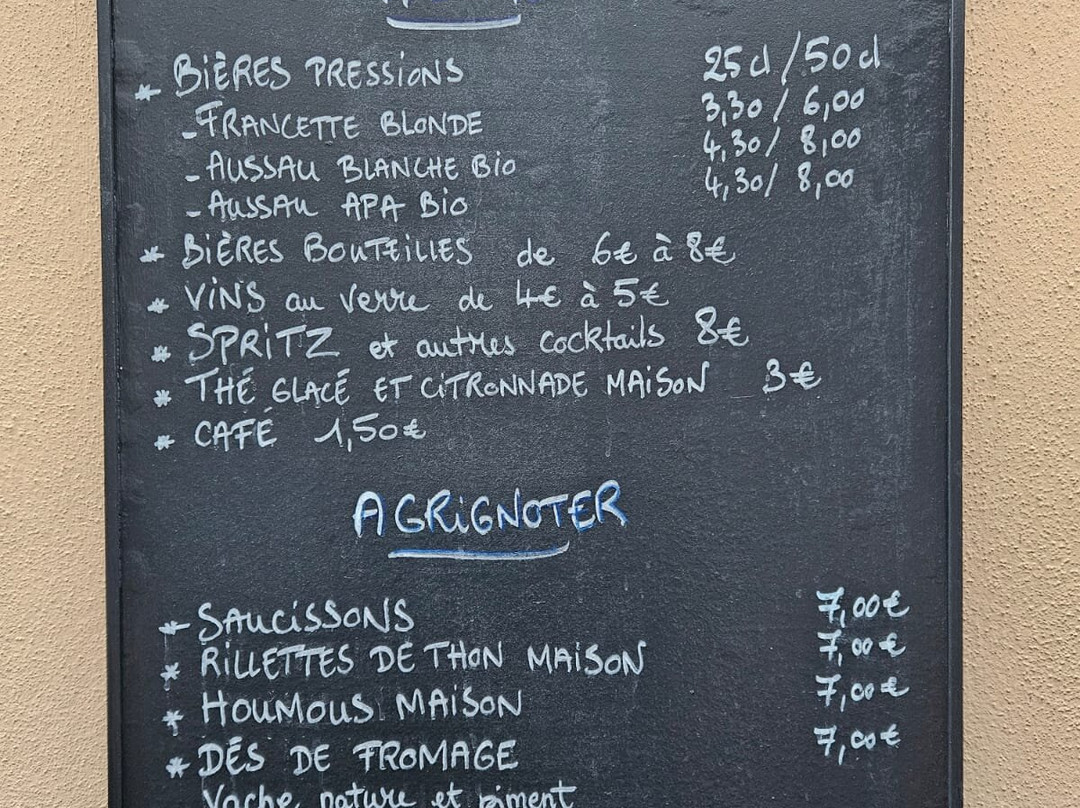 * BIÈRES PRESSIONS 25cl / 50cl
- FRANCETTE BLONDE 3,30 / 6,00
- AUSSAU BLANCHE BIO 4,30 / 8,00
- AUSSAU APA BIO 4,30 / 8,00
* BIÈRES BOUTEILLES de 6€ à 8€
* VINS au verre de 4€ à 5€
* SPRITZ et autres cocktails 8€
* THÉ GLACÉ ET CITRONNADE MAISON 3€
* CAFÉ 1,50€
A GRIGNOTER
* SAUCISSONS 7,00€
* RILLETTES DE THON MAISON 7,00€
* HOUMOUS MAISON 7,00€
* DÉS DE FROMAGE 7,00€
Vache nature et piment